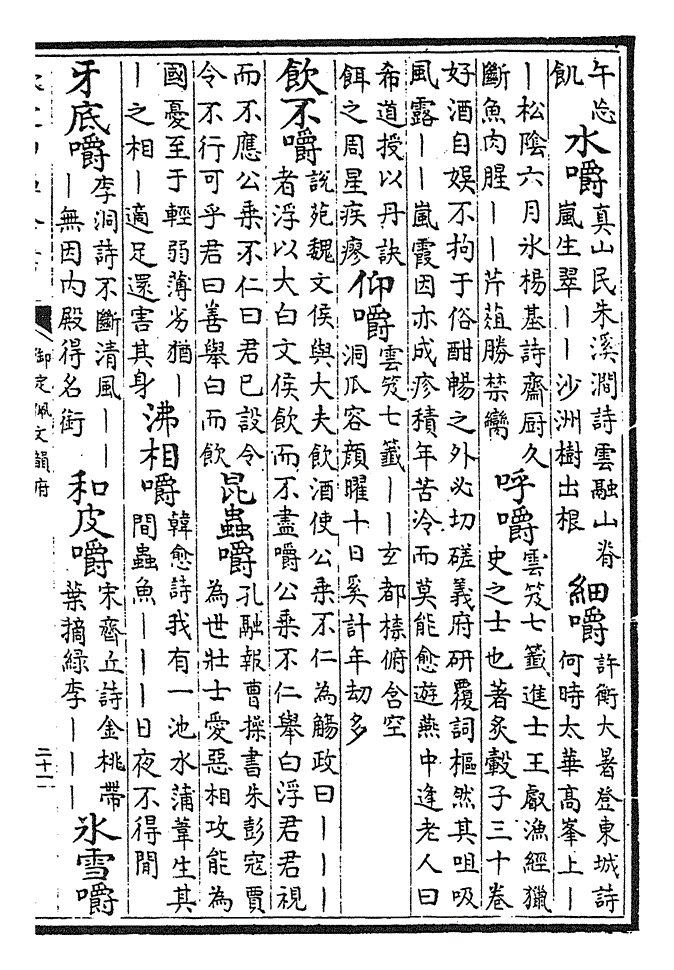 午忘
飢
水嚼
真山民朱溪澗詩雲融山脊
嵐生翠丨丨沙洲樹出根
細嚼
許衡大暑登東城詩
何時太華高峯上丨
丨松陰六月氷楊基詩齋厨久
斷魚肉腥丨丨芹葅勝禁臠
呼嚼
雲笈七籤進士王叡漁經獵
史之士也著炙轂子三十卷
好酒自娛不拘于俗酣暢之外必切磋義府研覆詞樞然其咀吸
風露丨丨嵐霞因亦成疹積年苦冷而莫能愈遊燕中逢老人曰
希道授以丹訣
餌之周星疾瘳
仰嚼
雲笈七籤丨丨玄都榛俯含空
洞瓜容顔曜十日奚計年刼多
飲不嚼
說苑魏文侯與大夫飲酒使公乘不仁為觴政曰丨丨丨
者浮以大白文侯飲而不盡嚼公乘不仁舉白浮君君視
而不應公乘不仁曰君已設令
令不行可乎君曰善舉白而飲
昆蟲嚼
孔融報曹操書朱彭寇賈
為世壯士愛惡相攻能為
國憂至于輕弱薄劣猶丨
丨之相丨適足還害其身
沸相嚼
韓愈詩我有一池水蒲葦生其
間蟲魚丨丨丨日夜不得閒
牙底嚼
李洞詩不斷清風丨丨
丨無因内殿得名街
和皮嚼
宋齊丘詩金桃帶
葉摘緑李丨丨丨
氷雪嚼
御定佩文韻府
二十一